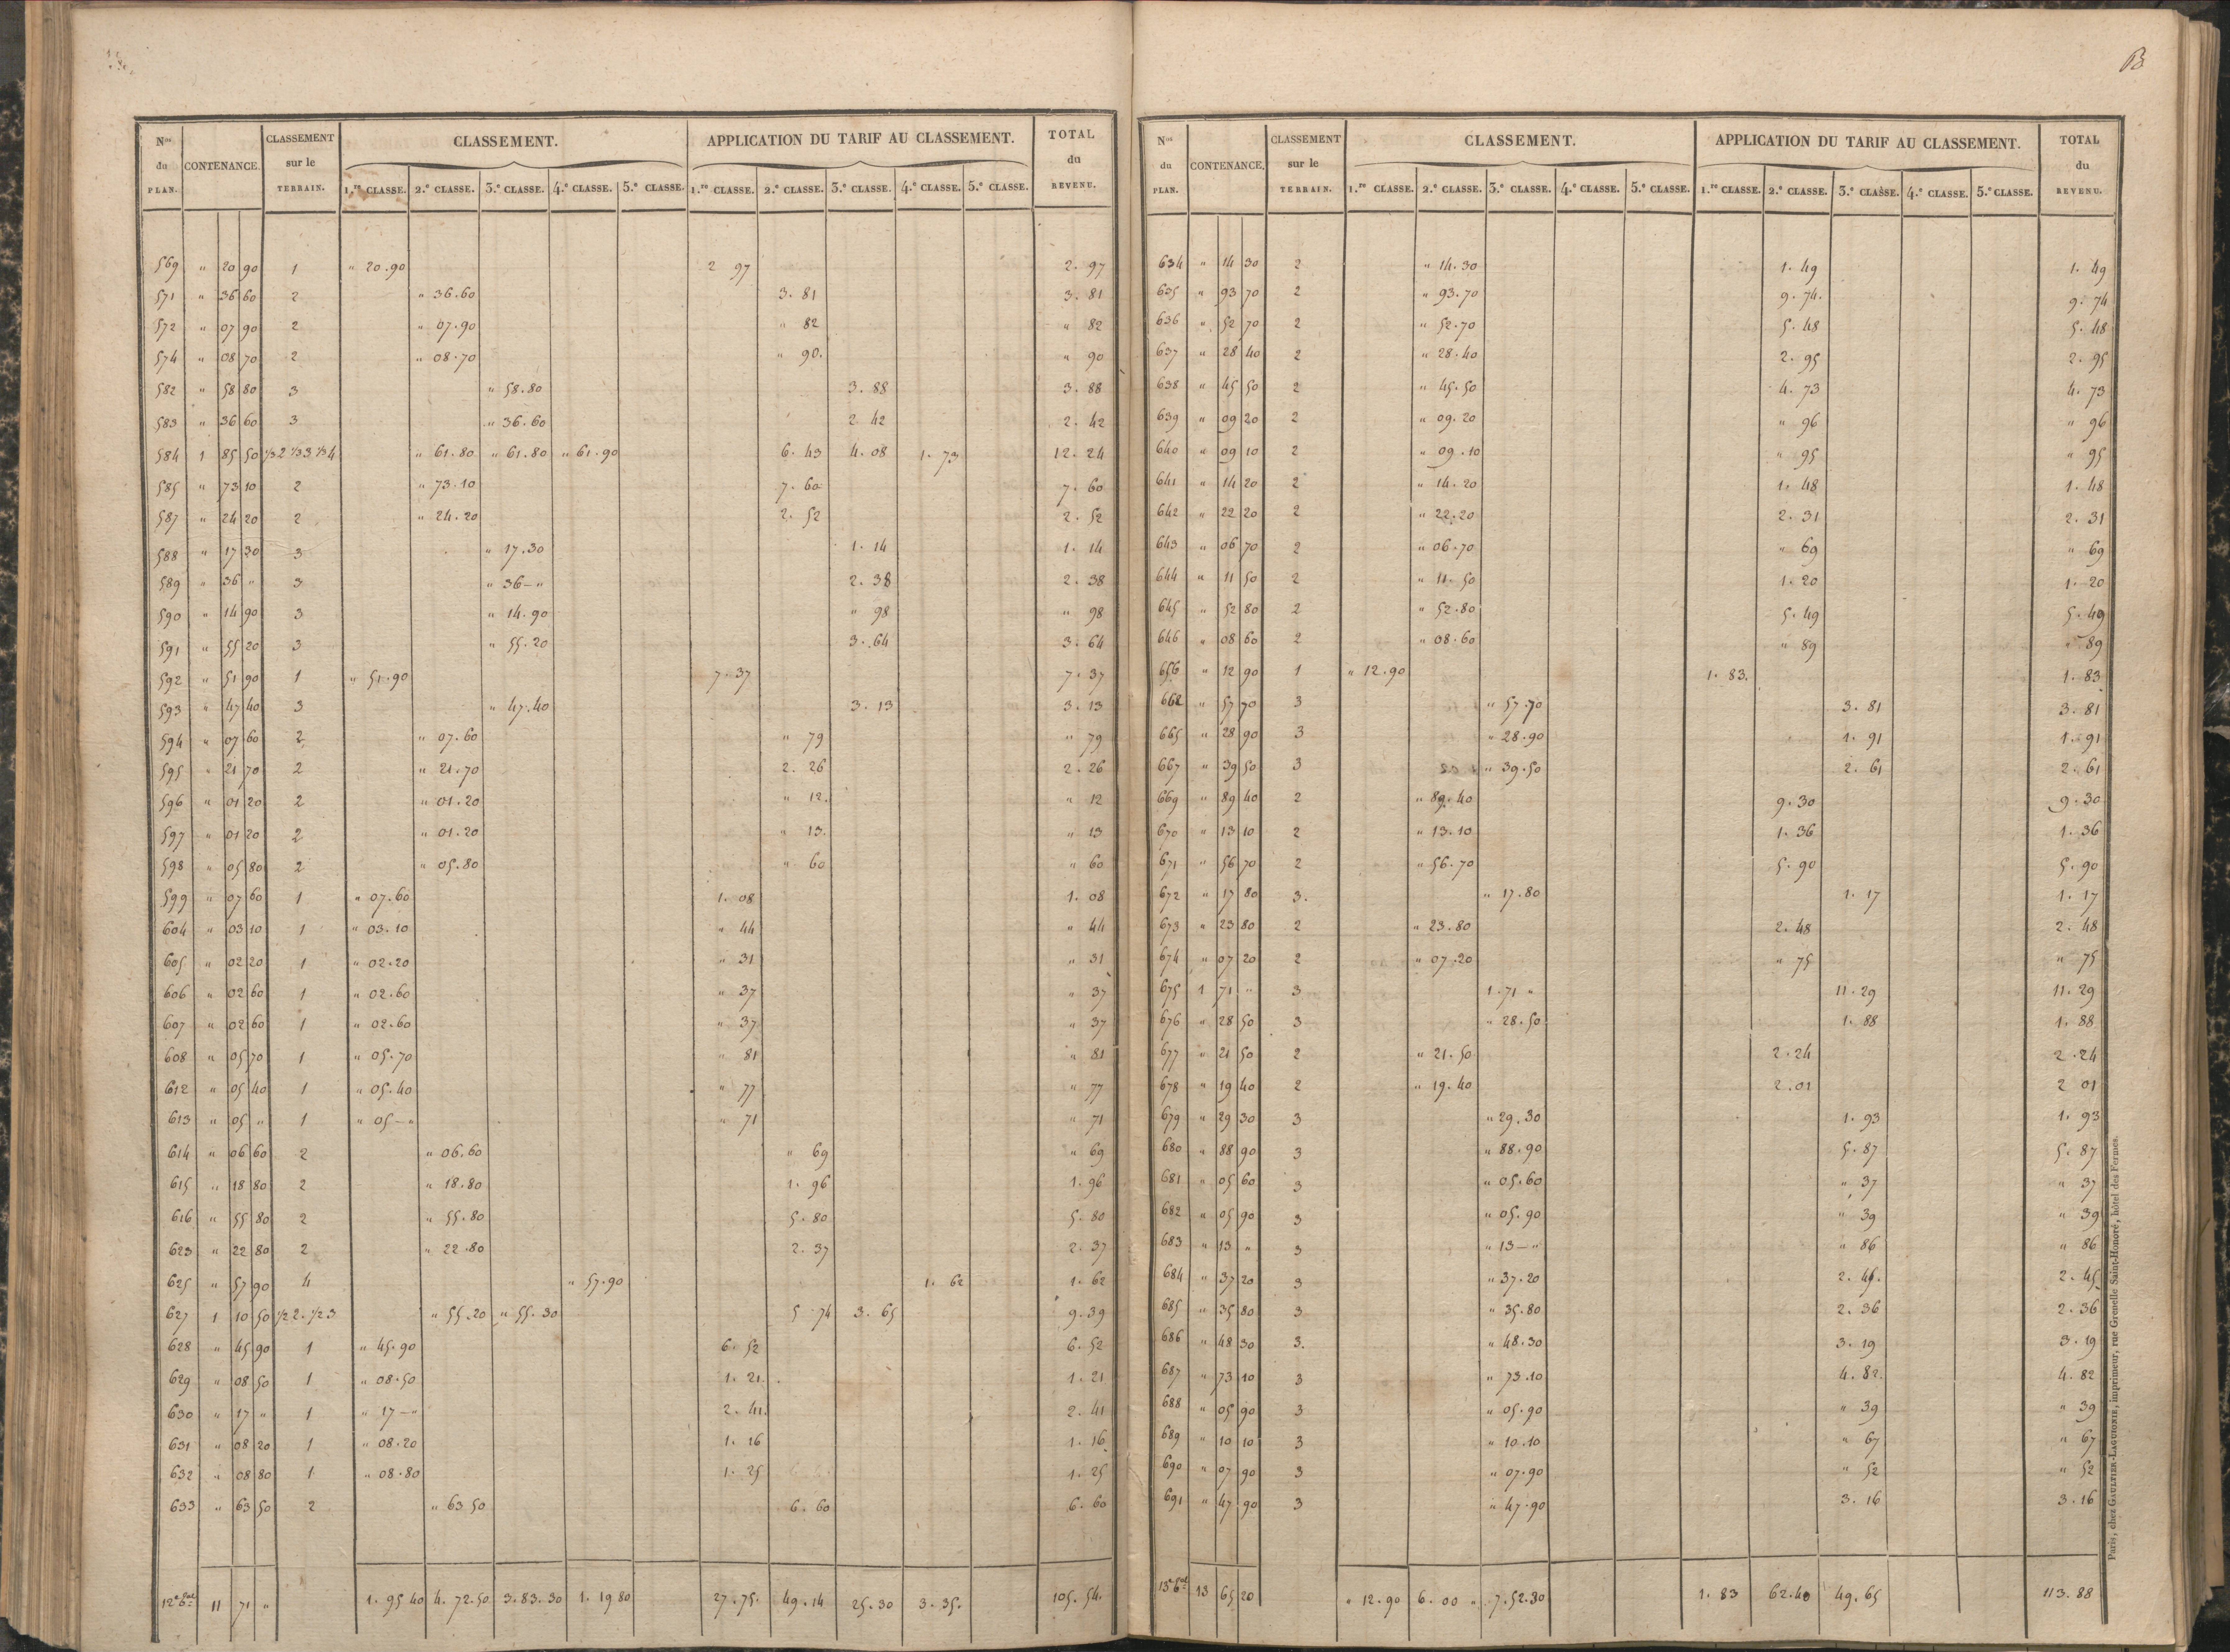 Nos du PLAN. CONTENANCE. CLASSEMENT sur le TERRAIN. CLASSEMENT. APPLICATION DU TARIF AU CLASSEMENT. TOTAL du REVENU.
1.re CLASSE. 2.e CLASSE. 3.e CLASSE. 4.e CLASSE. 5.e CLASSE. 1.re CLASSE. 2.e CLASSE. 3.e CLASSE. 4.e CLASSE. 5.e CLASSE.
569 " 20 90 1 " 20.90 2 97 2. 97
571 " 36 60 2 " 36.60 3. 81 3. 81
572 " 07 90 2 " 07.90 " 82 " 82
574 " 08 70 2 " 08.70 " 90. " 90
582 " 58 80 3 " 58.80 3. 88 3. 88
583 " 36 60 3 " 36.60 2 42 2. 42
584 1 85 50 1/3 2 1/3 3 1/3 4 " 61.80 " 61.80 " 61.90 6. 43 4. 08 1. 73 12. 24
585 " 73 10 2 " 73.10 7. 60 7. 60
587 " 24 20 2 " 24.20 2. 52 2. 52
588 " 17 30 3 " 17.30 1. 14 1. 14
589 " 36 " 3 " 36–" 2. 38 2. 38
590 " 14 90 3 " 14.90 " 98 " 98
591 " 55 20 3 " 55.20 3. 64 3. 64
592 " 51 90 1 " 51.90 7. 37 7. 37
593 " 47 40 3 " 47.40 3. 13 3. 13
594 " 07 60 2 " 07.60 " 79 " 79
595 " 21 70 2 " 21.70 2. 26 2. 26
596 " 01 20 2 " 01.20 " 12. " 12
597 " 01 20 2 " 01.20 " 13. " 13
598 " 05 80 2 " 05.80 " 60 " 60
599 " 07 60 1 " 07.60 1. 08 1. 08
604 " 03 10 1 " 03.10 " 44 " 44
605 " 02 20 1 " 02.20 " 31 " 31
606 " 02 60 1 " 02.60 " 37 " 37
607 " 02 60 1 " 02.60 " 37 " 37
608 " 05 70 1 " 05.70 " 81 " 81
612 " 05 40 1 " 05.40 " 77 " 77
613 " 05 " 1 " 05–" " 71 " 71
614 " 06 60 2 " 06.60 " 69 " 69
615 " 18 80 2 " 18.80 1. 96 1. 96
616 " 55 80 2 " 55.80 5. 80 5. 80
623 " 22 80 2 " 22.80 2. 37 2. 37
625 " 57 90 4 " 57.90 1. 62 1. 62
627 1 10 50 1/2 2. 1/2 3 " 55.20 " 55.30 5 74 3. 65 9.39
628 " 45 90 1 " 45.90 6. 52 6. 52
629 " 08 50 1 " 08.50 1. 21. 1. 21
630 " 17 " 1 " 17–" 2. 41. 2. 41
631 " 08 20 1 " 08.20 1. 16 1. 16
632 " 08 80 1 " 08.80 1. 25 1. 25
633 " 63 50 2 " 63 50 6. 60 6. 60
11 71 " 1. 95 40 4. 72.50 3.83.30 1. 19 80 27.75. 49.14 25.30 3.35. 105.54.
Nos du PLAN. CONTENANCE. CLASSEMENT sur le TERRAIN. CLASSEMENT. APPLICATION DU TARIF AU CLASSEMENT. TOTAL du REVENU.
1.re CLASSE. 2.e CLASSE. 3.e CLASSE. 4.e CLASSE. 5.e CLASSE. 1.re CLASSE. 2.e CLASSE. 3.e CLASSE. 4.e CLASSE. 5.e CLASSE.
634 " 14 30 2 " 14.30 1. 49 1. 49
635 " 93 70 2 " 93.70 9. 74. 9. 74
636 " 52 70 2 " 52.70 5. 48 5. 48
637 " 28 40 2 " 28.40 2. 95 2. 95
638 " 45 50 2 " 45.50 4. 73 4. 73
639 " 09 20 2 " 09.20 " 96 " 96
640 " 09 10 2 " 09.10 " 95 " 95
641 " 14 20 2 " 14.20 1. 48 1. 48
642 " 22 20 2 " 22.20 2. 31 2. 31
643 " 06 70 2 " 06.70 " 69 " 69
644 " 11 50 2 " 11.50 1. 20 1. 20
645 " 52 80 2 " 52.80 5. 49 5. 49
646 " 08 60 2 " 08.60 " 89 " 89
656 " 12 90 1 " 12.90 1. 83. 1. 83
662 " 57 70 3 " 57.70 3. 81 3. 81
665 " 28 90 3 " 28.90 1. 91 1. 91
667 " 39 50 3 " 39.50 2. 61 2. 61
669 " 89 40 2 " 89.40 9.30 9.30
670 " 13 10 2 " 13.10 1. 36 1. 36
671 " 56 70 2 " 56.70 5. 90 5. 90
672 " 17 80 3. " 17.80 1. 17 1. 17
673 " 23 80 2 " 23.80 2. 48 2. 48
674 " 07 20 2 " 07.20 " 75 " 75
675 1 71 " 3 1.71 " 11.29 11.29
676 " 28 50 3 " 28.50 1. 88 1. 88
677 " 21 50 2 " 21.50 2.24 2.24
678 " 19 40 2 " 19.40 2.01 2 01
679 " 29 30 3 " 29.30 1. 93 1. 93
680 " 88 90 3 " 88.90 5. 87 5. 87
681 " 05 60 3 " 05.60 " 37 " 37
682 " 05 90 3 " 05.90 " 39 " 39
683 " 13 " 3 " 13–" " 86 " 86
684 " 37 20 3 " 37.20 2. 45. 2. 45
685 " 35 80 3 " 35.80 2. 36 2. 36
686 " 48 30 3. " 48.30 3. 19 3. 19
687 " 73 10 3 " 73.10 4. 82. 4. 82
688 " 05 90 3 " 05.90 " 39 " 39
689 " 10 10 3 " 10.10 " 67 " 67
690 " 07 90 3 " 07.90 " 52 " 52
691 " 47 90 3 " 47.90 3. 16 3. 16
13 65 20 " 12.90 6. 00 " 7.52.30 1. 83 62.40 49.65 113.88
Paris, chez GAULTIER-LAGUIONIE, imprimeur, rue Grenelle Saint-Honoré, hôtel des Fermes.